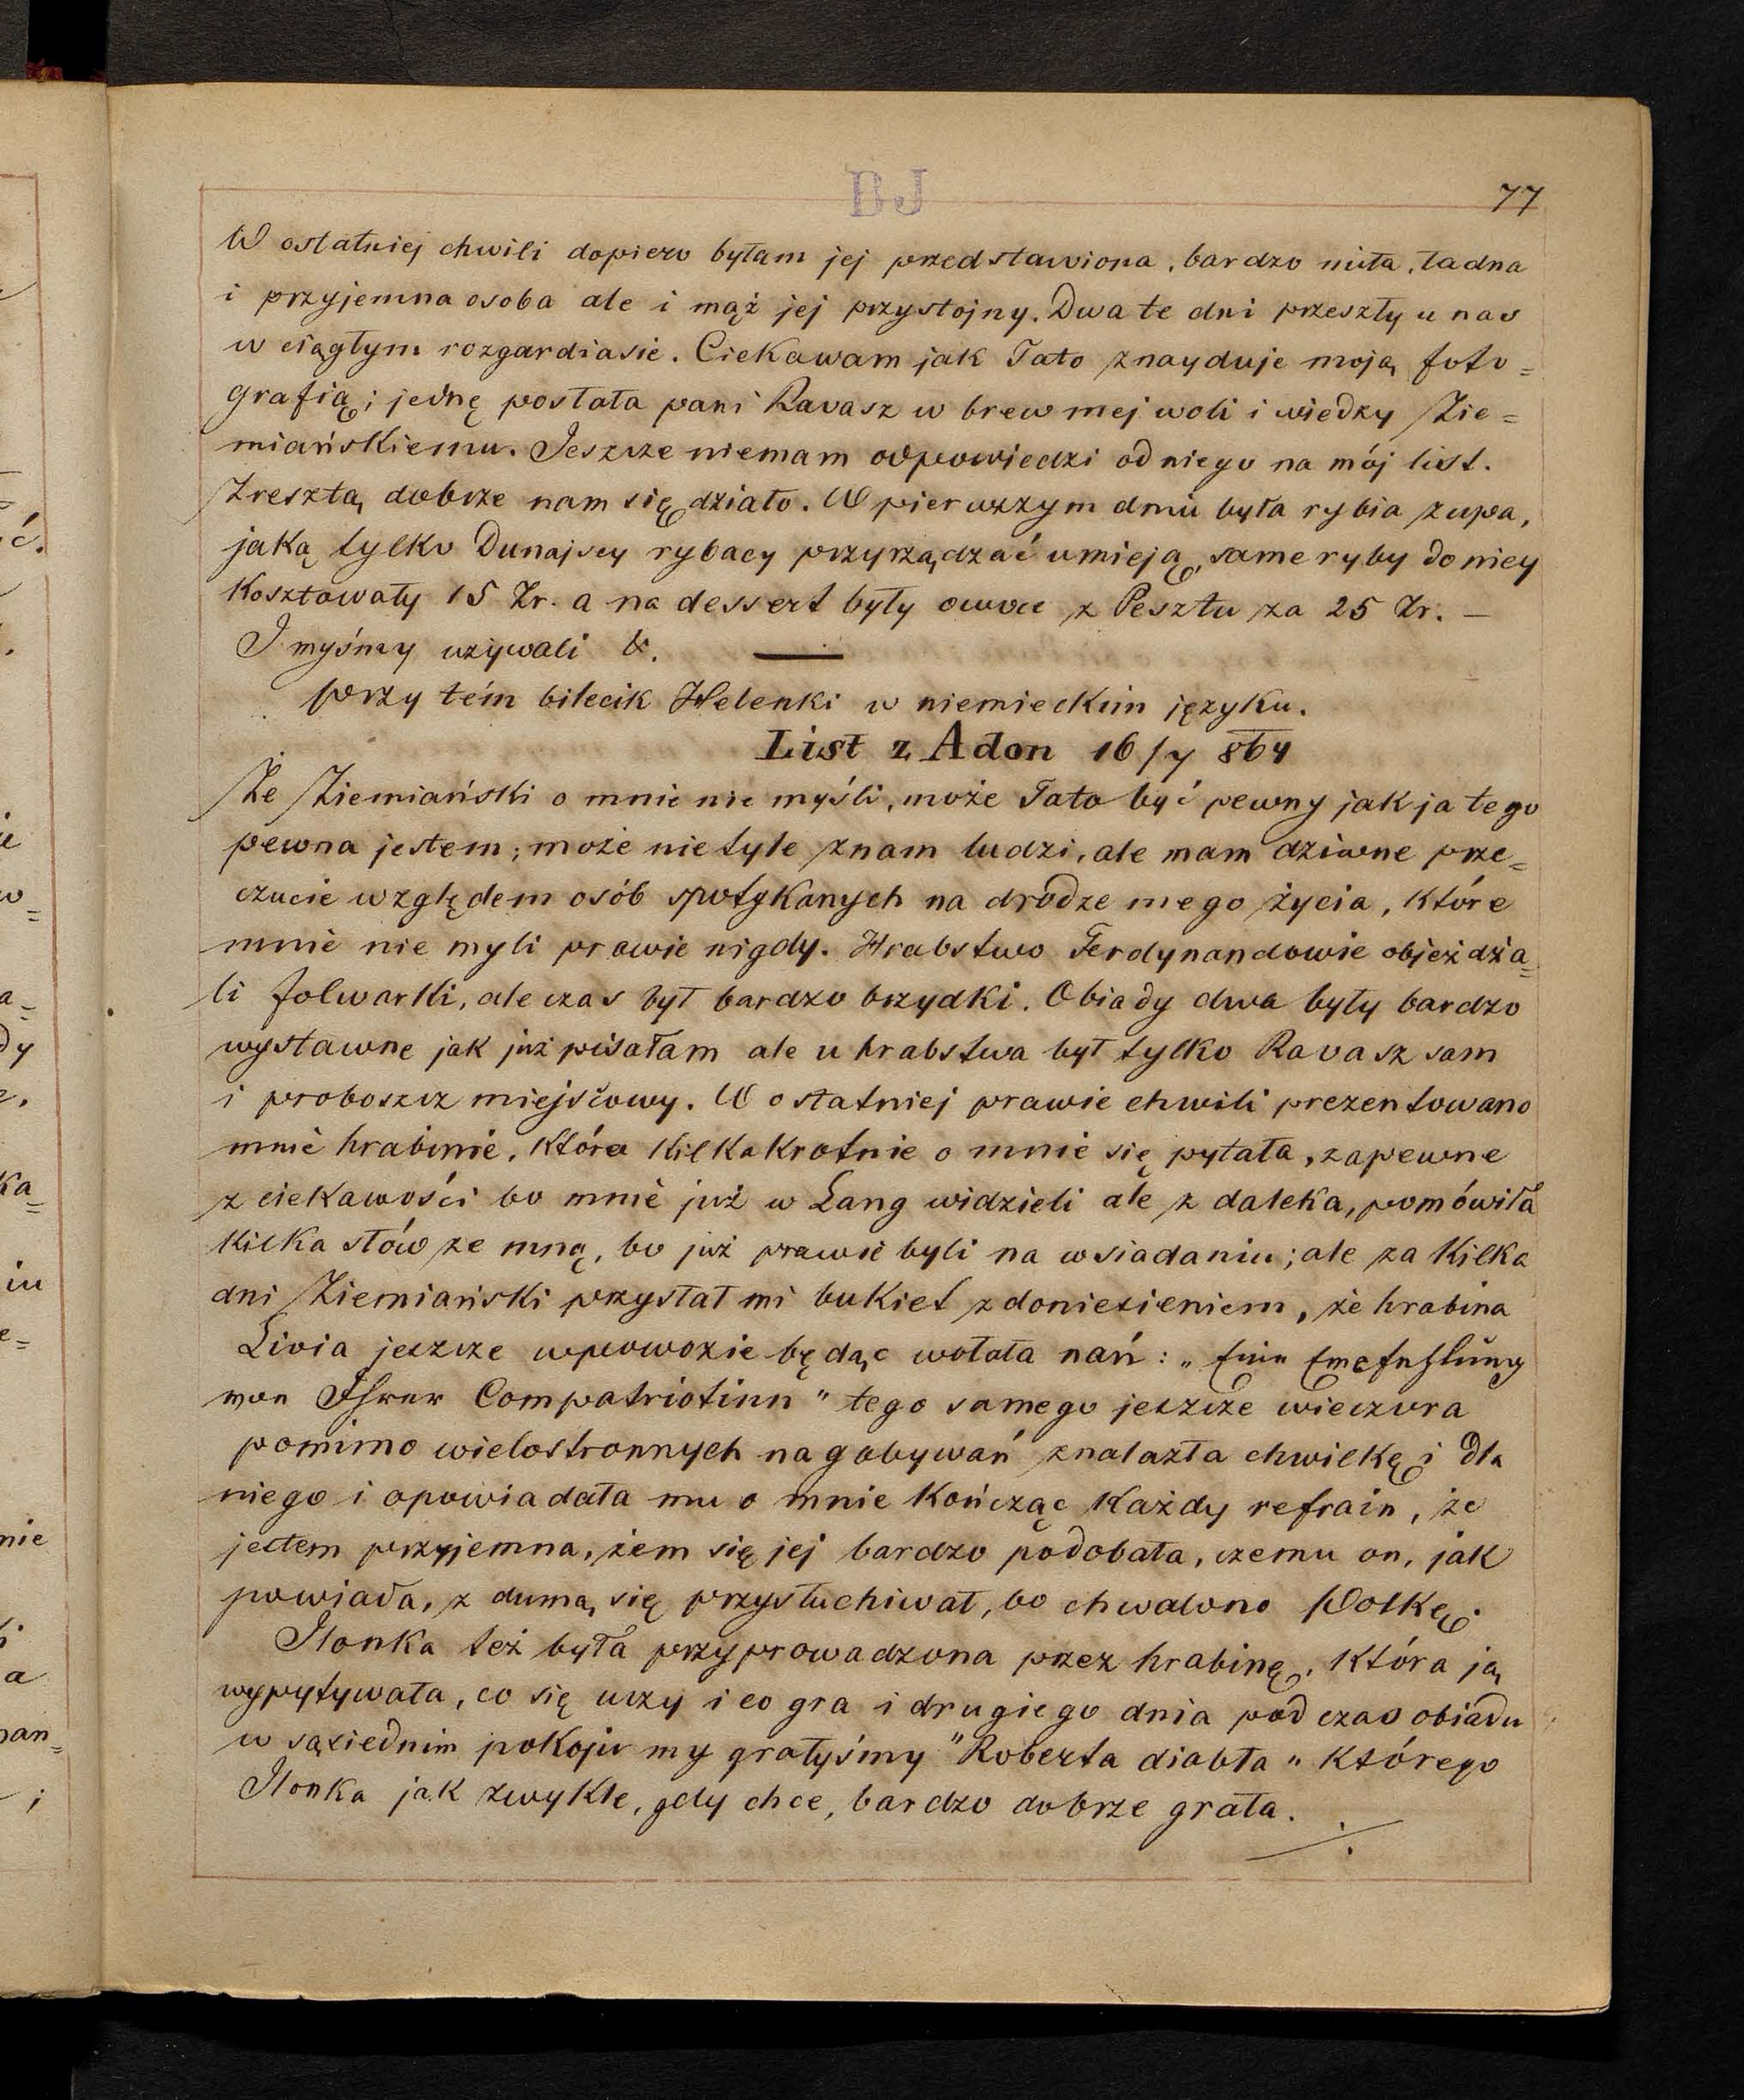 BJ
77
W ostatniej chwili dopiero byłam jej przedstawiona, bardzo miła, ładna
i przyjemna osoba ale i mąż jej przystojny. Dwa te dni przeszły u nas
w ciągłym rozgardiasie. Ciekawam jak Tato znayduje moją foto=
grafią; jednę posłała pani Ravasz w brew mej woli i wiedzy Zie=
miańskiemu. Jeszcze niemam odpowiedzi od niego na mój list.
Zresztą dobrze nam się działo. W pierwszym dniu była rybia zupa,
jaką tylko Dunajscy rybacy przyrządzać umieją, same ryby do niey
Kosztowały 15 Zr. a na dessert były owoce z Pesztu za 25 Zr. —
I myśmy używali &.
przy tém bilecik Helenki w niemieckim języku.
List z Adon 16/7 864
Że Ziemiański o mnie nie myśli, może Tato być pewny jak ja tego
pewna jestem; może nie tyle znam ludzi, ale mam dziwne prze=
czucie względem osób spotykanych na drodze mego życia, które
mnie nie myli prawie nigdy. Hrabstwo Ferdynandowie objeżdża=
li folwarki, ale czas był bardzo brzydki. Obiady dwa były bardzo
wystawne jak już pisałam ale u hrabstwa był tylko Ravasz sam
i proboszcz miejscowy. W ostatniej prawie chwili prezentowano
mnie hrabinie, która kilkakrotnie o mnie się pytała, zapewne
z ciekawości bo mnie już w Lang widzieli ale z daleka, pomówiła
kilka słów ze mną, bo już prawie byli na wsiadaniu; ale za kilka
dni Ziemiański przysłał mi bukiet z doniesieniem, że hrabina
Livia jeszcze w powozie będąc wołała nań: „Eine Empfehlung
von Ihrer Compatriotinn" tego samego jeszcze wieczora
pomimo wielostronnych nagabywań znalazła chwilkę i dla
niego i opowiadała mu o mnie Kończąc Każdy refrain, że
jestem przyjemna, żem się jej bardzo podobała, czemu on, jak
powiada, z dumą się przysłuchiwał, bo chwalono Polkę.
Ilonka też była przyprowadzona przez hrabinę, która ją
wypytywała, co się uczy i co gra i drugiego dnia pod czas obiadu
w sąsiednim pokoju my grałyśmy "Roberta diabła" którego
Ilonka jak zwykle, gdy chce, bardzo dobrze grała.